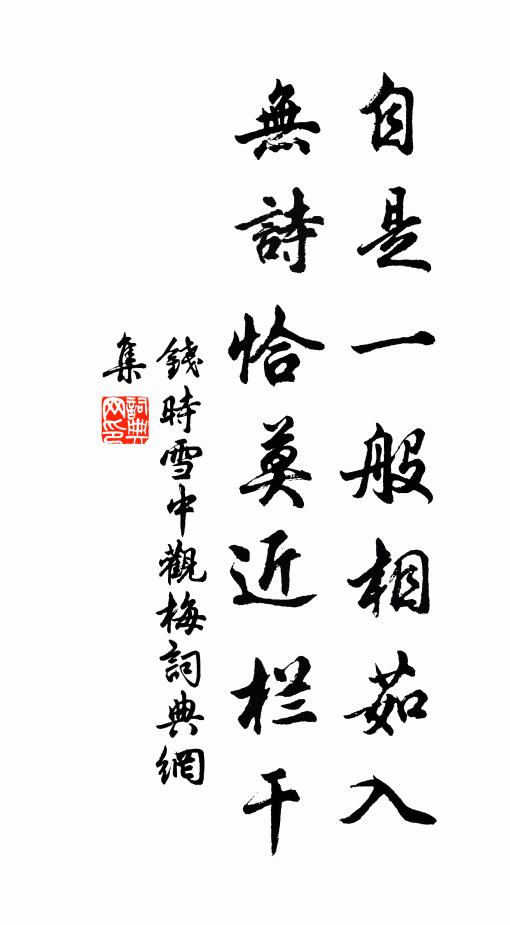 自是一般相茹入
無詩恰莫近栏干
錢時雪中觀梅詞典網
集
詞典
网印